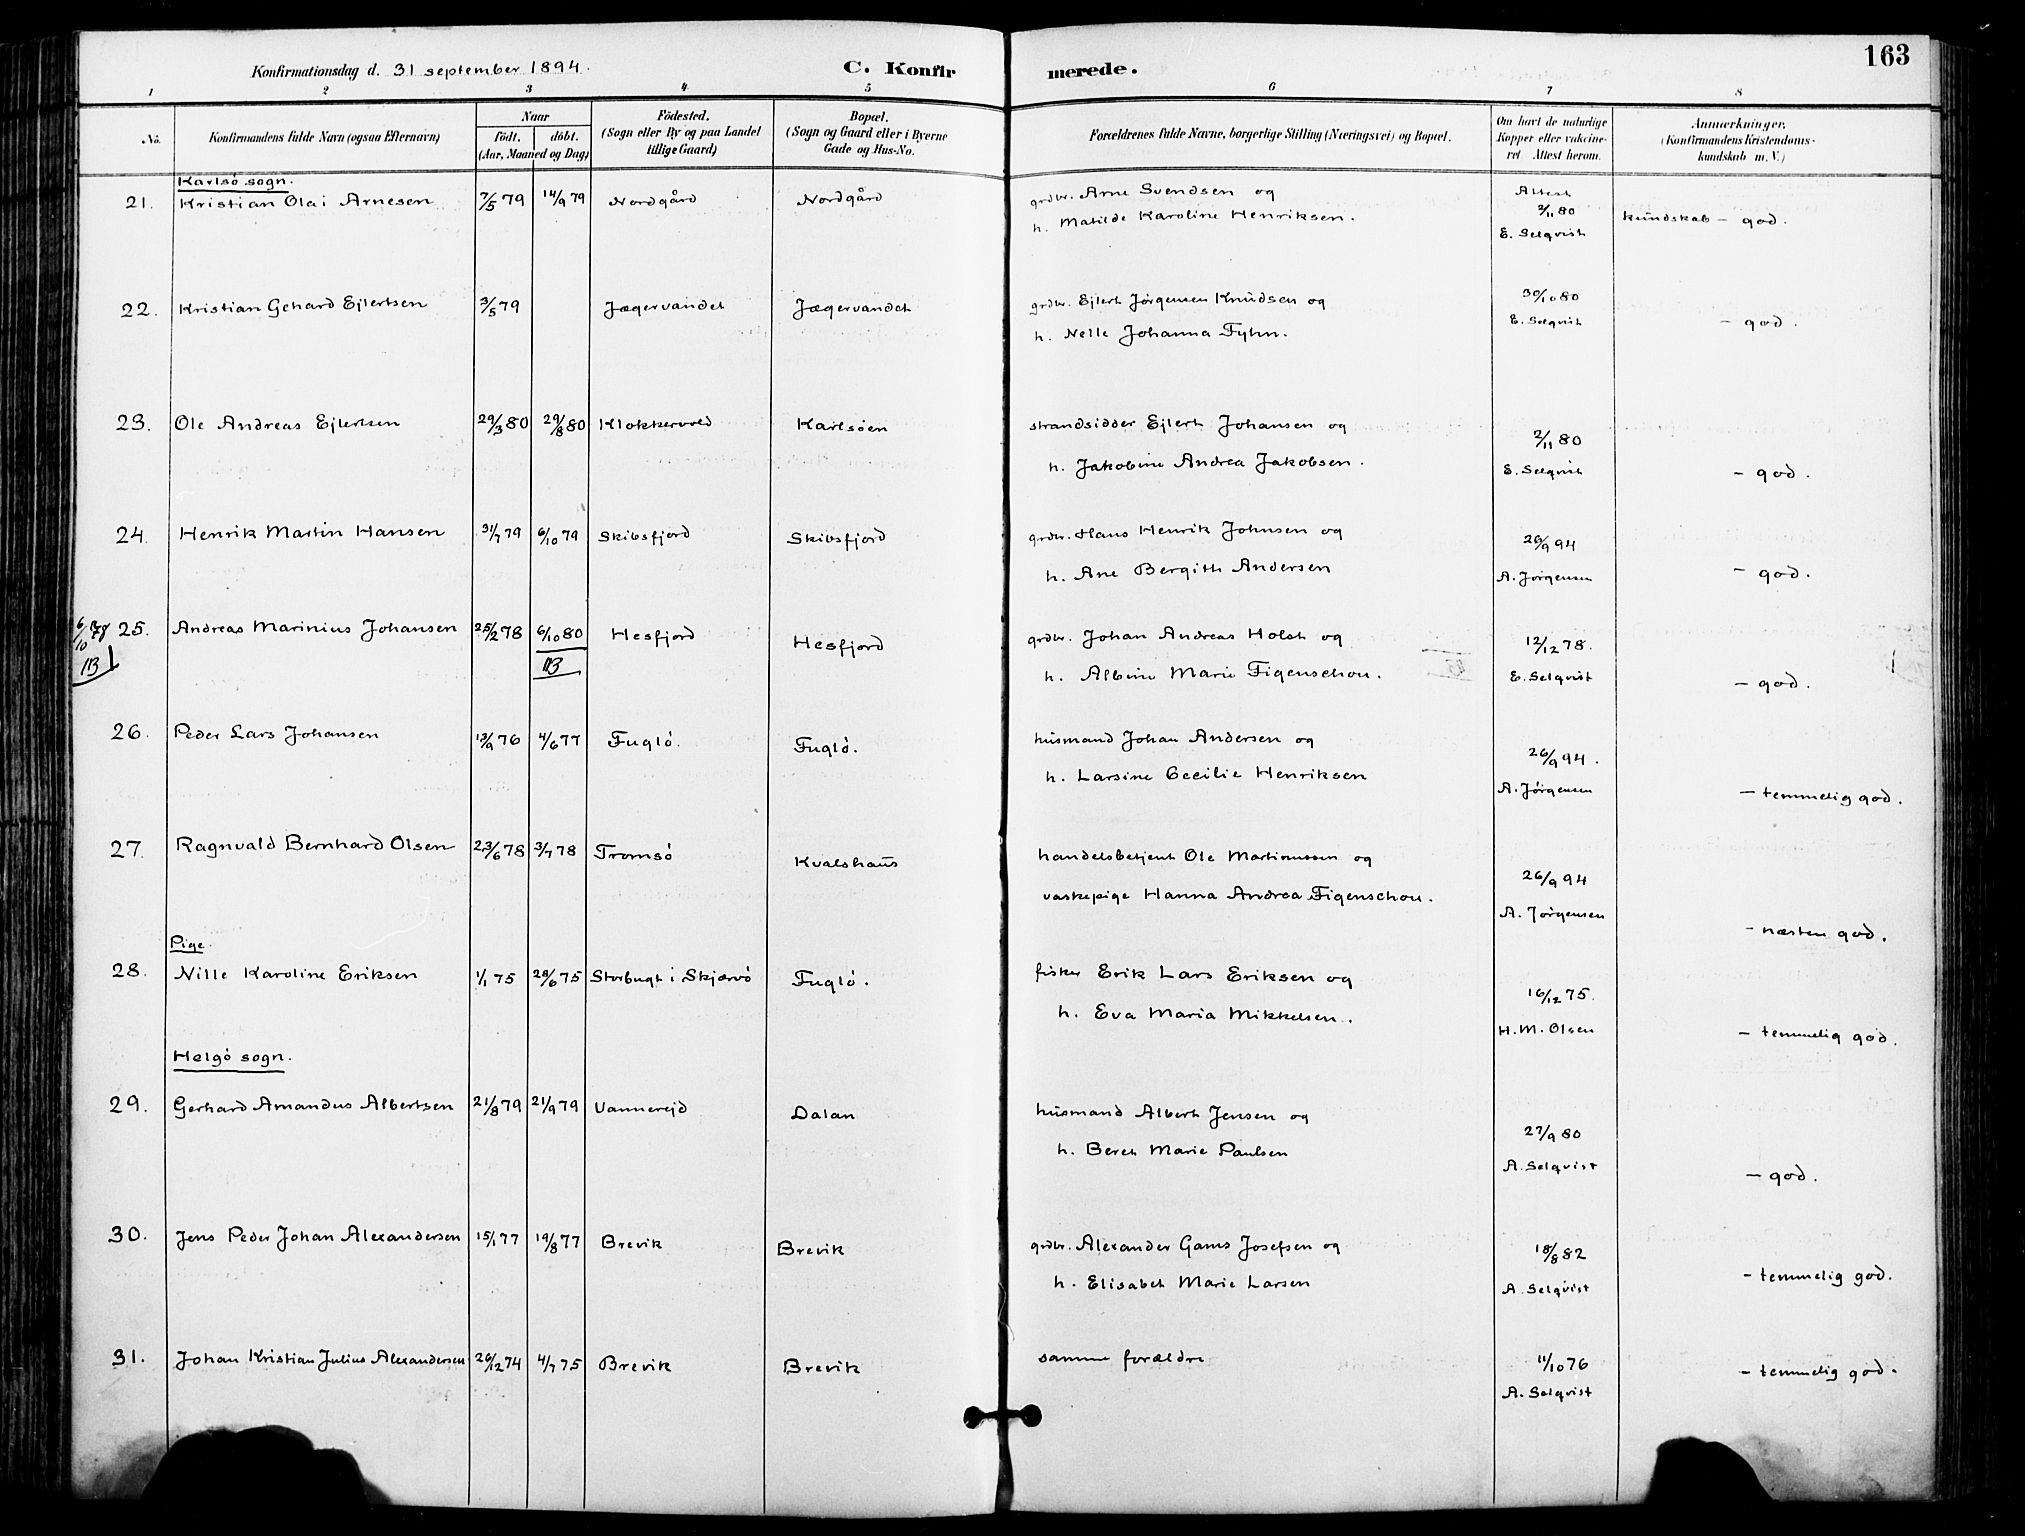 163
Konfirmationsdag d. 31 september 1894.
C. Konfirmerede.
1 2 3 4 5 6 7 8
No. Konfirmandens fulde Navn (ogsaa Efternavn) Naar födt. döbt. (Aar, Maaned og Dag) Födested. (Sogn eller By og paa Landet tillige Gaard) Bopæl. (Sogn og Gaard eller i Byerne Gade og Hus-No. Forældrenes fulde Navne, borgerlige Stilling (Næringsvei) og Bopæl. Om havt de naturlige Kopper eller vakcineret. Attest herom. Anmærkninger, (Konfirmandens Kristendomskundskab m. V.)
Karlsö sogn.
21. Kristian Olai Arnesen 7/5 79 14/9 79 Nordgård Nordgård grdbr. Arne Svendsen og Attest
h. Matilde Karoline Henriksen. 2/11 80 kundskab - god.
E. Selqvist
22. Kristian Gehard Ejlertsen 3/5 79 Jægervandet Jægervandet grdbr. Ejlert Jörgensen Knudsen og 30/10 80
h. Nelle Johanna Fyhn. E. Selqvist - god.
23. Ole Andreas Ejlertsen 29/3 80 29/8 80 Klokkervold Karlsöen strandsidder Ejlert Johansen og 2/11 80
h. Jakobine Andrea Jakobsen. E. Selqvist - god.
24. Henrik Martin Hansen 31/7 79 6/10 79 Skibsfjord Skibsfjord grdbr. Hans Henrik Johnsen og 26/9 94
h. Ane Bergith Andersen A. Jörgensen - god.
6/10 78 25. Andreas Marinius Johansen 25/2 78 6/10 80 Hesfjord Hesfjord grdbr. Johan Andreas Holst og 12/12 78.
113 113 h. Albine Marie Figenschou. E. Selqvist - god.
26. Peder Lars Johansen 13/9 76 4/6 77 Fuglö. Fuglö. husmand Johan Andersen og 26/9 94.
h. Larsine Cecilie Henriksen A. Jörgensen - temmelig god.
27. Ragnvald Bernhard Olsen 23/6 78 3/7 78 Tromsö Kvalshaus handelsbetjent Ole Martinussen og 26/9 94
vaskepige Hanna Andrea Figenschou. A. Jörgensen - næsten god.
Pige.
28. Nille Karoline Eriksen 1/1 75 28/6 75 Storbugt i Skjærvö Fuglö. fisker Erik Lars Eriksen og 16/12 75.
h. Eva Maria Mikkelsen. H. M. Olsen - temmelig god.
Helgö sogn.
29. Gerhard Amandus Albertsen 21/8 79 21/9 79 Vannerejd Dalan husmand Albert Jensen og 27/9 80
h. Beret Marie Paulsen A. Selqvist - god.
30. Jens Peder Johan Alexandersen 15/1 77 19/8 77 Brevik Brevik grdbr. Alexander Gams Josefsen og 18/8 82
h. Elisabet Marie Larsen A. Selqvist - temmelig god.
31. Johan Kristian Julius Alexandersen 26/12 74 4/7 75 Brevik Brevik samme forældre 11/10 76 - temmelig god.
A. Selqvist